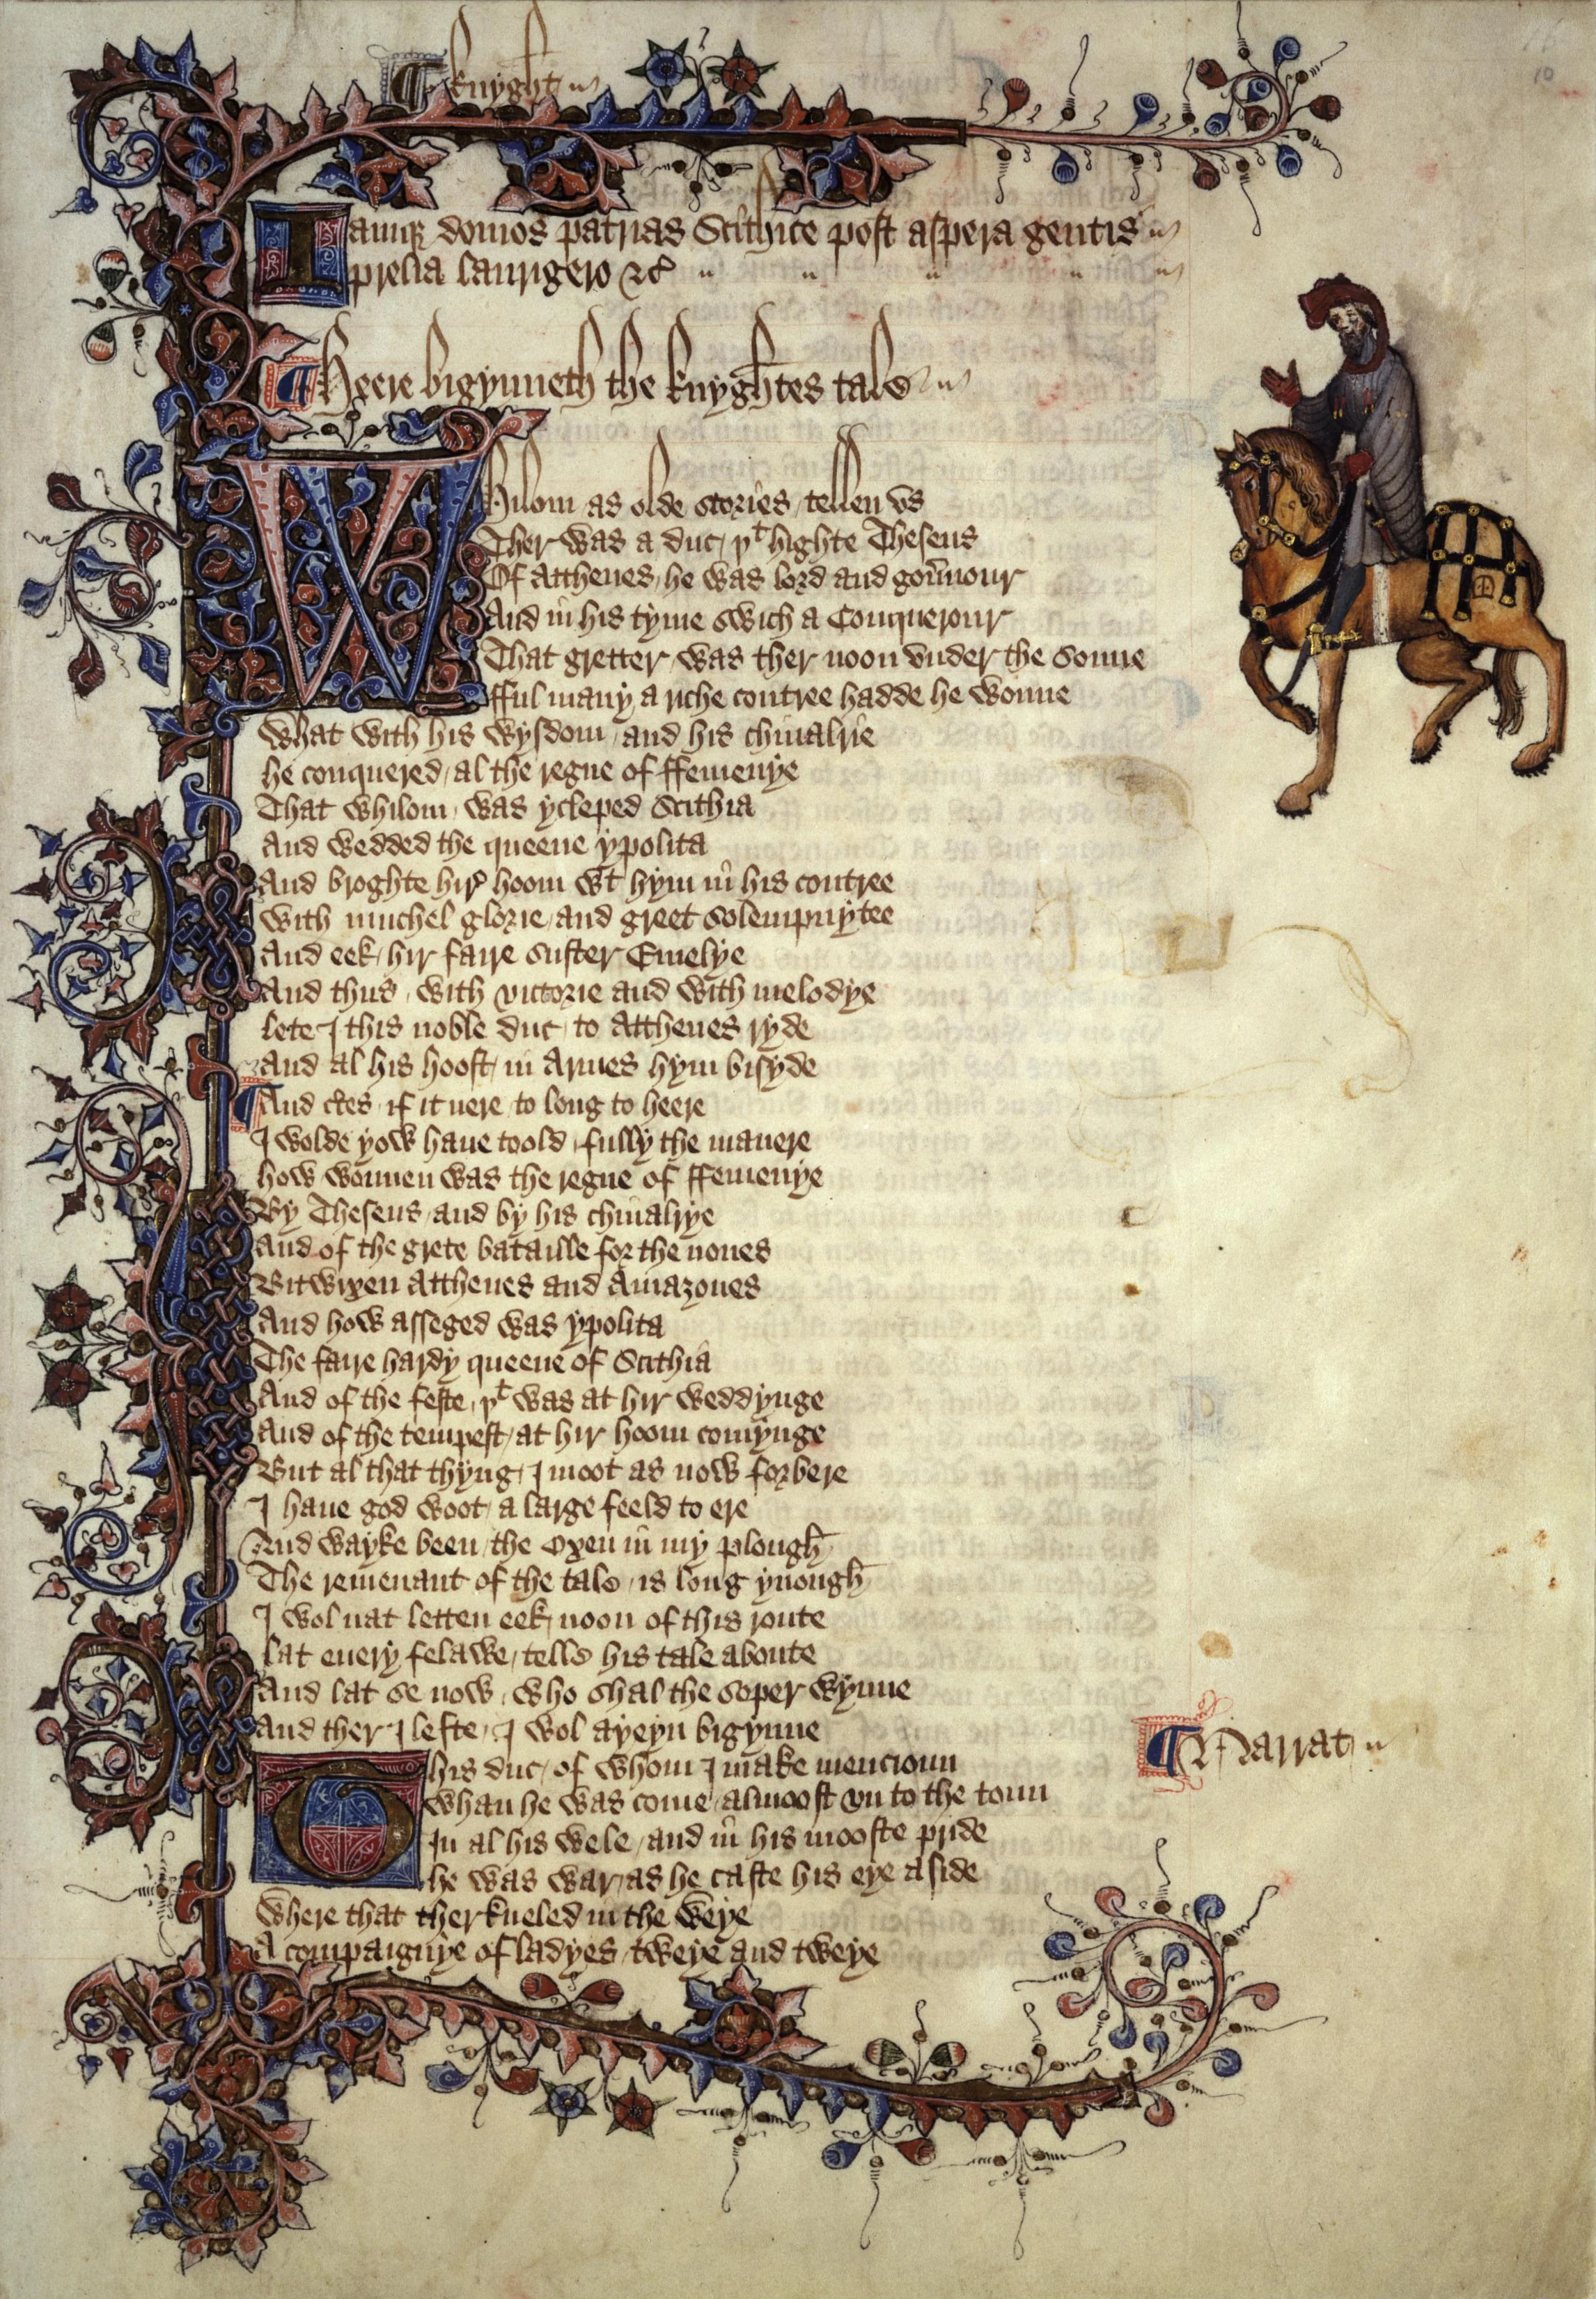 ¶ knyght
10
Iamque domos patrias Scithice post aspera gentis
prelia laurigero &c
¶ Heere bigynneth the knyghtes tale
Whilom as olde stories / tellen vs
Ther was a duc / þt highte Theseus
Of Atthenes / he was lord and gouernour
And in his tyme swich a Conquerour
That gretter / was ther noon vnder the sonne
fful many a riche contree hadde he wonne
What with his wysdom / and his chiualrie
he conquered / al the regne of ffemenye
That whilom / was ycleped Scithia
And wedded the queene ypolita
And broghte hire hoom wt hym in his contree
With muchel glorie / and greet solempnytee
And eek / hir faire suster Emelye
And thus / with victorie and with melodye
lete I this noble duc / to Atthenes ryde
And al his hoost / in Armes hym bisyde
¶ And certes / if it nere to long to heere
I wolde yow haue toold / fully the manere
how wonnen was the regne of ffemenye
By Theseus / and by his chiualrye
And of the grete bataille for the nones
Bitwixen Atthenes and Amazones
And how asseged was ypolita
The faire hardy queene of Scithia
And of the feste / þt was at hir weddynge
And of the tempest / at hir hoom comynge
But al that thyng / I moot as now forbere
I haue god woot / a large feeld to ere
And wayke been / the Oxen in my plough
The remenant of the tale / is long ynough
I wol nat letten eek / noon of this route
lat euery felawe / telle his tale aboute
And lat se now / who shal the soper wynne
And ther I lefte / I wol ayeyn bigynne
¶ Narrat
This duc / of whom I make mencioun
Whan he was come / almoost vn to the toun
In al his wele / and in his mooste pride
he was war / as he caste his eye aside
Where that ther kneled in the weye
A compaignye of ladyes / tweye and tweye